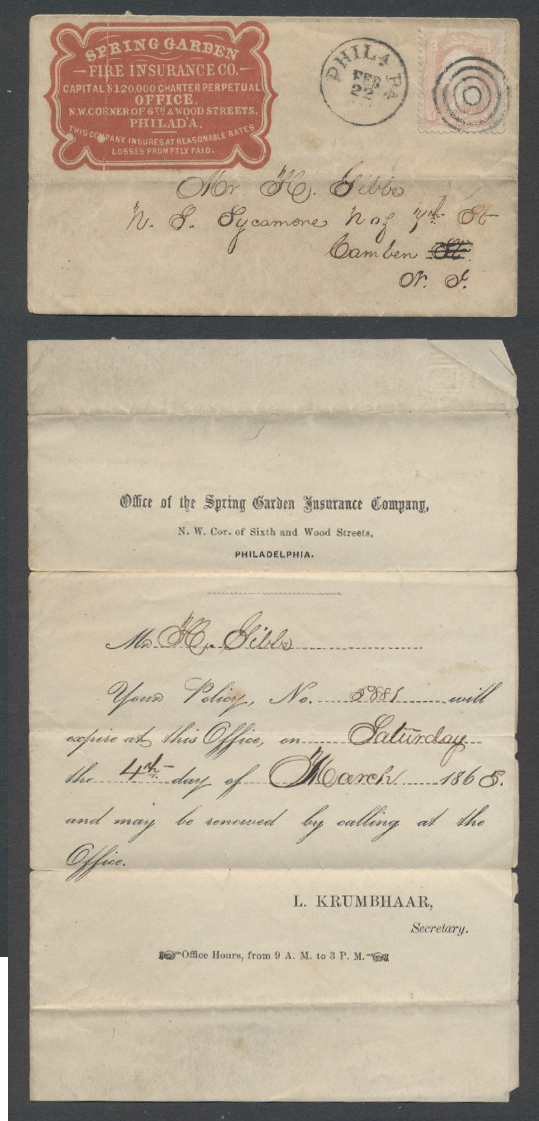 SPRING GARDEN
FIRE INSURANCE CO.
CAPITAL $120,000 CHARTER PERPETUAL
OFFICE.
N.W. CORNER OF 6TH & WOOD STREETS,
PHILADA.
THIS COMPANY INSURES AT REASONABLE RATES
LOSSES PROMPTLY PAID.
PHILA PA
FEB
22
Mr H. Gibbs
N. S. Sycamore N of 7th St
Camben
N. J.
Office of the Spring Garden Insurance Company,
N. W. Cor. of Sixth and Wood Streets,
PHILADELPHIA.
Mr H. Gibbs
Your Policy, No. 5881 will
expire at this Office, on Saturday
the 4th day of March 1865.
and may be renewed by calling at the
Office.
L. KRUMBHAAR,
Secretary.
Office Hours, from 9 A. M. to 3 P. M.